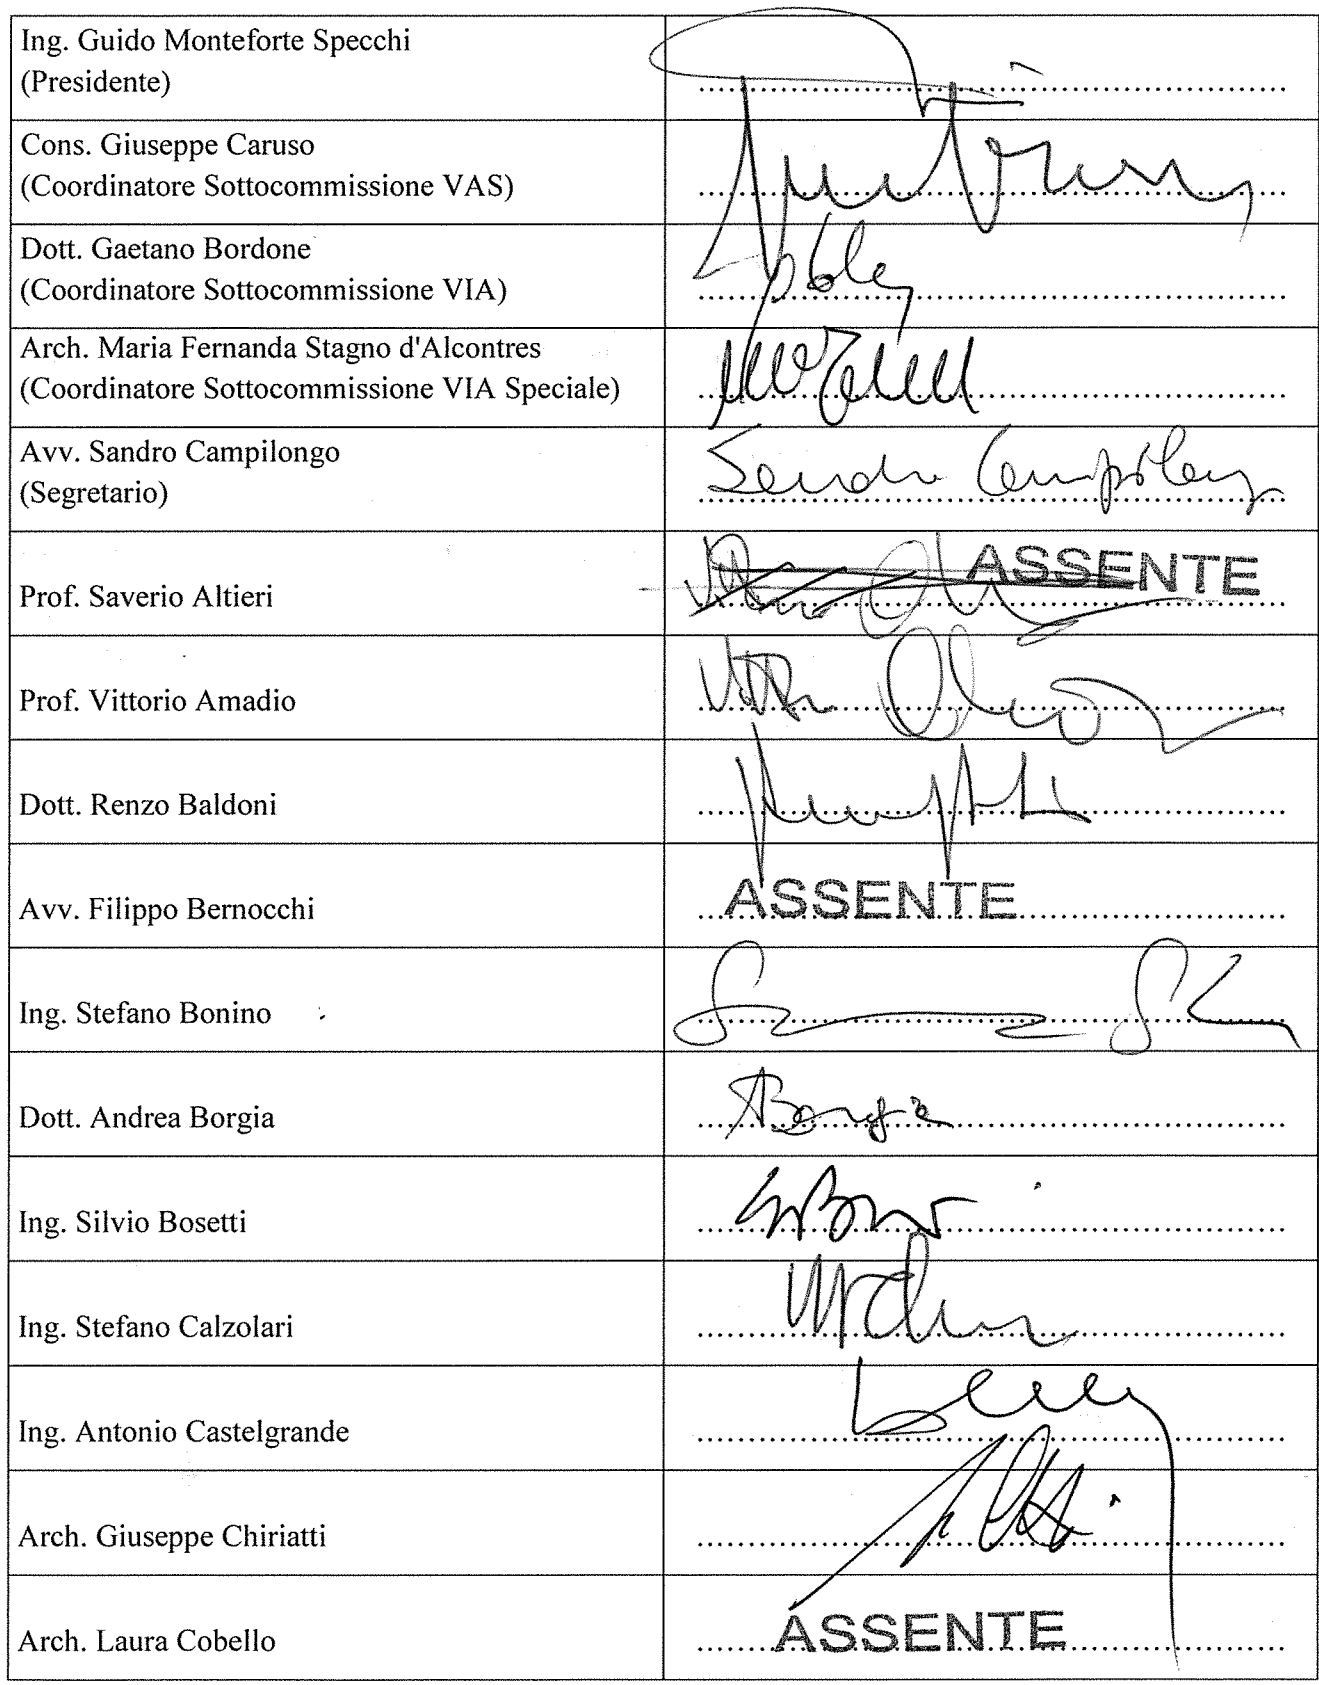 Ing. Guido Monteforte Specchi
(Presidente)
Cons. Giuseppe Caruso
(Coordinatore Sottocommissione VAS)
Dott. Gaetano Bordone
(Coordinatore Sottocommissione VIA)
Arch. Maria Fernanda Stagno d'Alcontres
(Coordinatore Sottocommissione VIA Speciale)
Avv. Sandro Campilongo
(Segretario)
Prof. Saverio Altieri
ASSENTE
Prof. Vittorio Amadio
Dott. Renzo Baldoni
Avv. Filippo Bernocchi
ASSENTE
Ing. Stefano Bonino
Dott. Andrea Borgia
ABorgia
Ing. Silvio Bosetti
Ing. Stefano Calzolari
Ing. Antonio Castelgrande
Arch. Giuseppe Chiriatti
Arch. Laura Cobello
ASSENTE